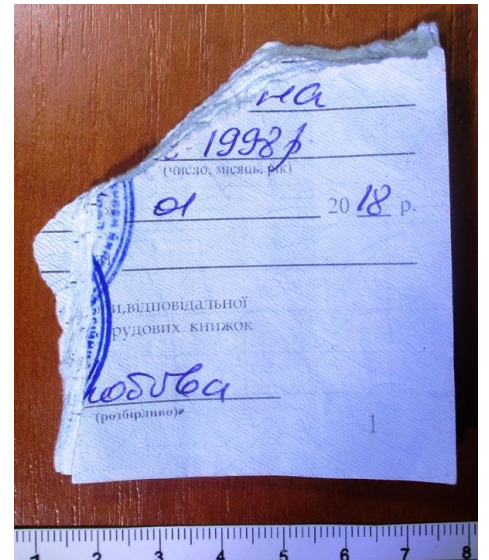 на
1998 р
(число, місяць, рік)
01 2018 р.
и, відповідальної
рудових книжок
(розбірливо)
1
1 2 3 4 5 6 7 8